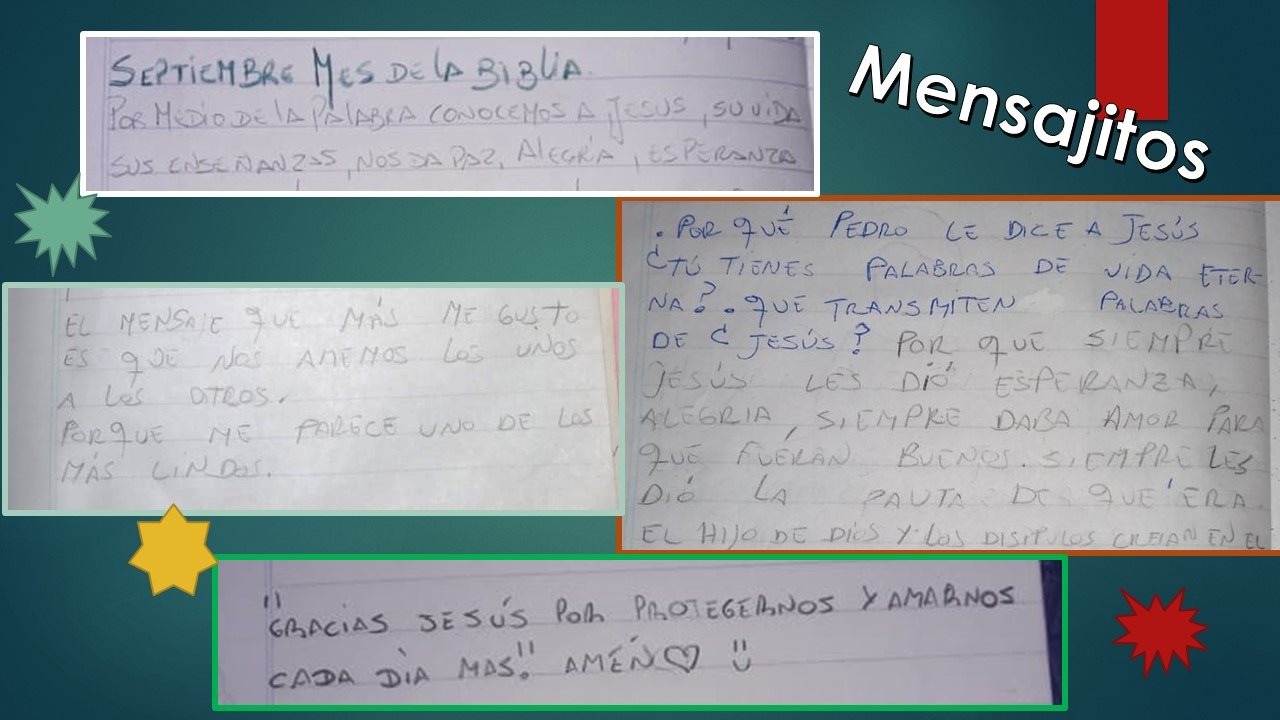 Mensajitos
SEPTIEMBRE MES DE LA BIBLIA.
POR MEDIO DE LA PALABRA CONOCEMOS A JESUS, SU VIDA
SUS ENSEÑANZAS, NOS DA PAZ, ALEGRÍA, ESPERANZA
EL MENSAJE QUE MÁS ME GUSTO
ES QUE NOS AMEMOS LOS UNOS
A LOS OTROS.
PORQUE ME PARECE UNO DE LOS
MÁS LINDOS.
. POR QUÉ PEDRO LE DICE A JESÚS
¿TÚ TIENES PALABRAS DE VIDA ETER-
NA? . QUE TRANSMITEN PALABRAS
DE ¿ JESÚS? POR QUE SIEMPRE
JESÚS LES DIÓ ESPERANZA,
ALEGRIA, SIEMPRE DABA AMOR PARA
QUE FUERÁN BUENOS. SIEMPRE LES
DIÓ LA PAUTA DE QUE ERA
EL HIJO DE DIOS Y LOS DISIPULOS CREIAN EN EL
"GRACIAS JESÚS POR PROTEGERNOS Y AMARNOS
CADA DÌA MAS." AMÉN♡ ¨∪